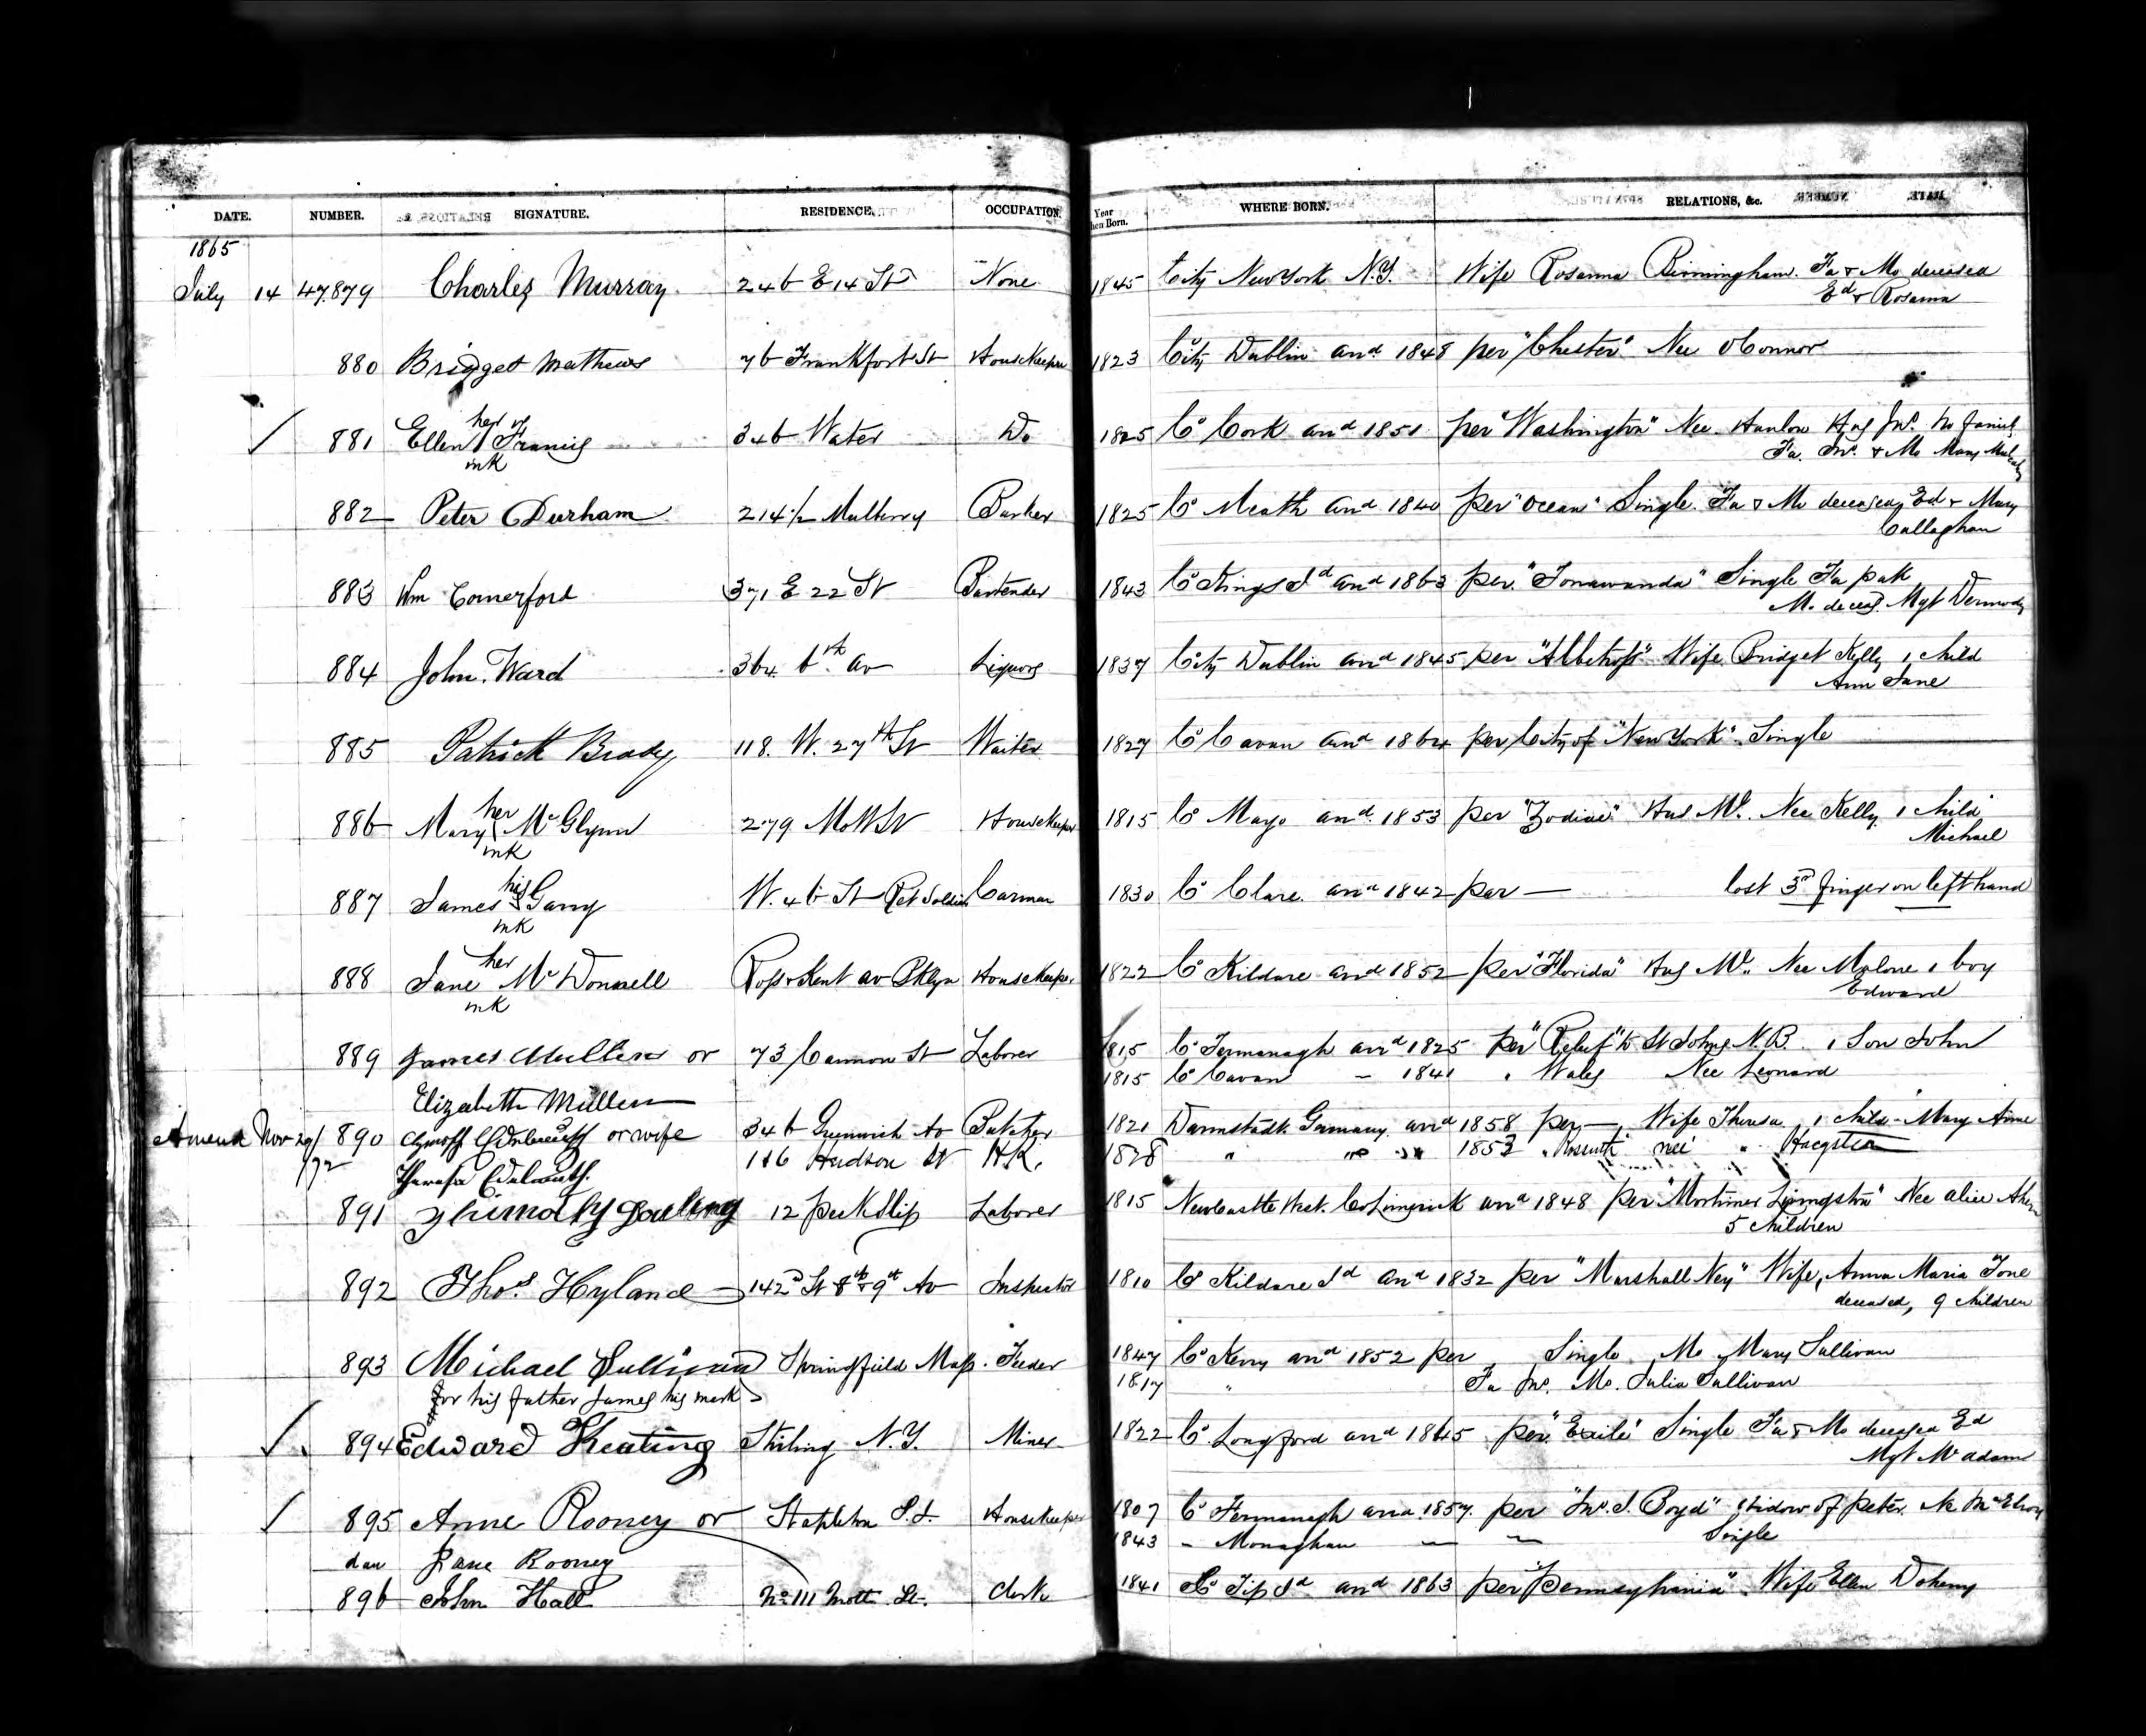 DATE. NUMBER. SIGNATURE. RESIDENCE. OCCUPATION. Year When Born. WHERE BORN. RELATIONS, &c.
1865
July 14 47,879 Charles Murray. 246 E 14 St None 1845 City New York N.Y. Wife Rosanna Birmingham. Fa & Mo deceased
Ed & Rosanna
880 Bridget Mathews 76 Frankfort St Housekeeper 1823 City Dublin arrd 1848 per "Chester" Nee OConnor
881 Ellen her Francis 346 Water Do 1825 Co Cork arrd 1851 per "Washington" Nee Hanlon Hus Jno. No family
mk Fa. Jno. & Mo Mary
882 Peter Durham 214 1/2 Mulberry 1825 Co Meath arrd 1840 per "Ocean" Single. Fa & Mo deceased Ed & Mary
Callaghan
883 Wm Comerford 371 E 22 St Bartender 1843 Co Kings Id arrd 1863 per "Tonawanda" Single Fa pat
Mo deceasd. Mgt Dermody
884 John Ward 364 6th av Liquors 1837 City Dublin arrd 1845 per Wife Bridget Kelly 1 child
Ann Jane
885 Patrick Brady 118. W. 27th St Waiter 1827 Co Cavan arrd 1864 per City of "New York" Single
886 Mary her McGlynn 279 Mott St Housekeeper 1815 Co Mayo arrd. 1853 per "Zodiac" Hus Ml. Nee Kelly 1 child
mk Michael
887 James his Garry W. 46 St Carman 1830 Co Clare arrd 1842 per — lost 3rd finger on left hand
mk
888 Jane her McDonnell Ross & Kent av Bklyn Housekeeper 1822 Co Kildare arrd 1852 per "Florida" Hus Ml. Nee Malone 1 boy
mk Edward
889 James Mullen or 73 Cannon St Laborer 1815 Co Fermanagh arrd 1825 per "Relief" to St Johns N.B. 1 Son John
Elizabeth Mullen 1815 Co Cavan – 1841 " Wales Nee Leonard
Amend Nov 29/72 890 or wife 346 Greenwich Av Butcher 1821 Darmstadt Germany arrd 1858 per —, Wife Theresa 1 child - Mary Anne
Theresa 116 Hudson St H.K. 1828 " " " 1853 " nee
891 Thimothy Douling 12 Peck Slip Laborer 1815 Newcastle West. Co Limerick arrd 1848 per "Mortimer Livingston" Nee Alice Ahern
5 children
892 Thos. Hyland 142d St 8th & 9th Av Inspector 1810 Co Kildare Id arrd 1832 per "Marshall Ney" Wife, Anna Maria Tone
deceased, 9 children
893 Michael Sullivan Springfield Mass. Feeder 1847 Co Kerry arrd 1852 per Single Mo Mary Sullivan
for his father James his mark 1817 " Fa Jno. Mo. Julia Sullivan
894 Edward Keating Stirling N.Y. Miner 1822 Co Longford arrd 1865 per "Exile" Single Fa & Mo deceased Ed
Mgt McAdam
895 Anne Rooney or Stapleton S.I. Housekeeper 1807 Co Fermanagh arrd. 1857. per "Jno. J. Boyd" Widow of Peter. Ne McElroy
dau Jane Rooney 1843 – Monaghan — — Single
896 John Hall No 111 Mott St. Clerk 1841 Co Tip Id arrd 1863 per "Pennsylvania" Wife Ellen Doheny